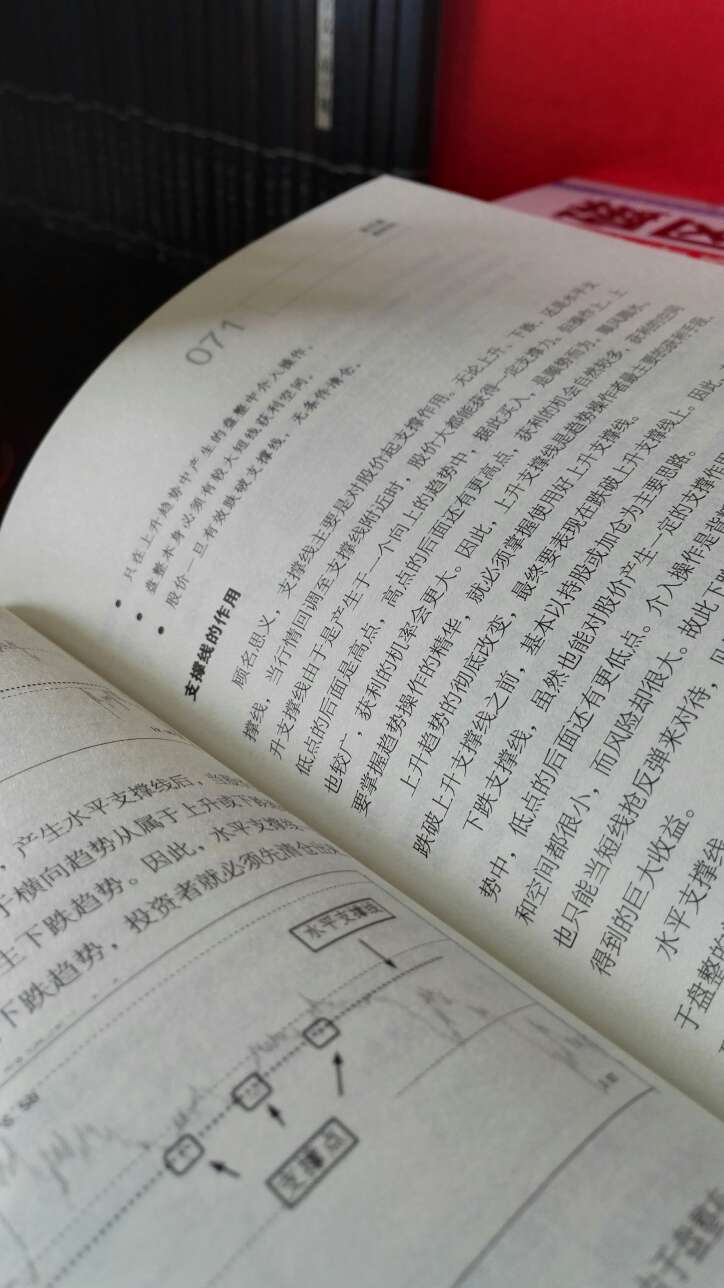 ，产生水平支撑线后，
于横向趋势从属于上升或下跌
生下跌趋势。因此，水平支撑线
下跌趋势，投资者就必须先清仓
水平支撑线
支撑点
071
● 只在上升趋势中产生的盘整中介入操作。
● 盘整本身必须有较大短线获利空间。
● 股价一旦有效跌破支撑线，无条件清仓。
支撑线的作用
顾名思义，支撑线主要是对股价起支撑作用。无论上升、下跌，还是水平支
撑线，当行情回调至支撑线附近时，股价大都能获得一定支撑力。但操作上，上
升支撑线由于是产生于一个向上的趋势中，据此买入，是顺势而为，顺风顺水，
低点的后面是高点，高点的后面还有更高点，获利的机会自然较多，获利的空间
也较广，获利的机率会更大。因此，上升支撑线是趋势操作者最主要的获利手段，
要掌握趋势操作的精华，就必须掌握使用好上升支撑线。
上升趋势的彻底改变，最终要表现在跌破上升支撑线上。因此，
跌破上升支撑线之前，基本以持股或加仓为主要思路。
下跌支撑线，虽然也能对股价产生一定的支撑作用
势中，低点的后面还有更低点。介入操作是背
和空间都很小，而风险却很大。故此下跌
也只能当短线抢反弹来对待，
得到的巨大收益。
水平支撑线
于盘整的